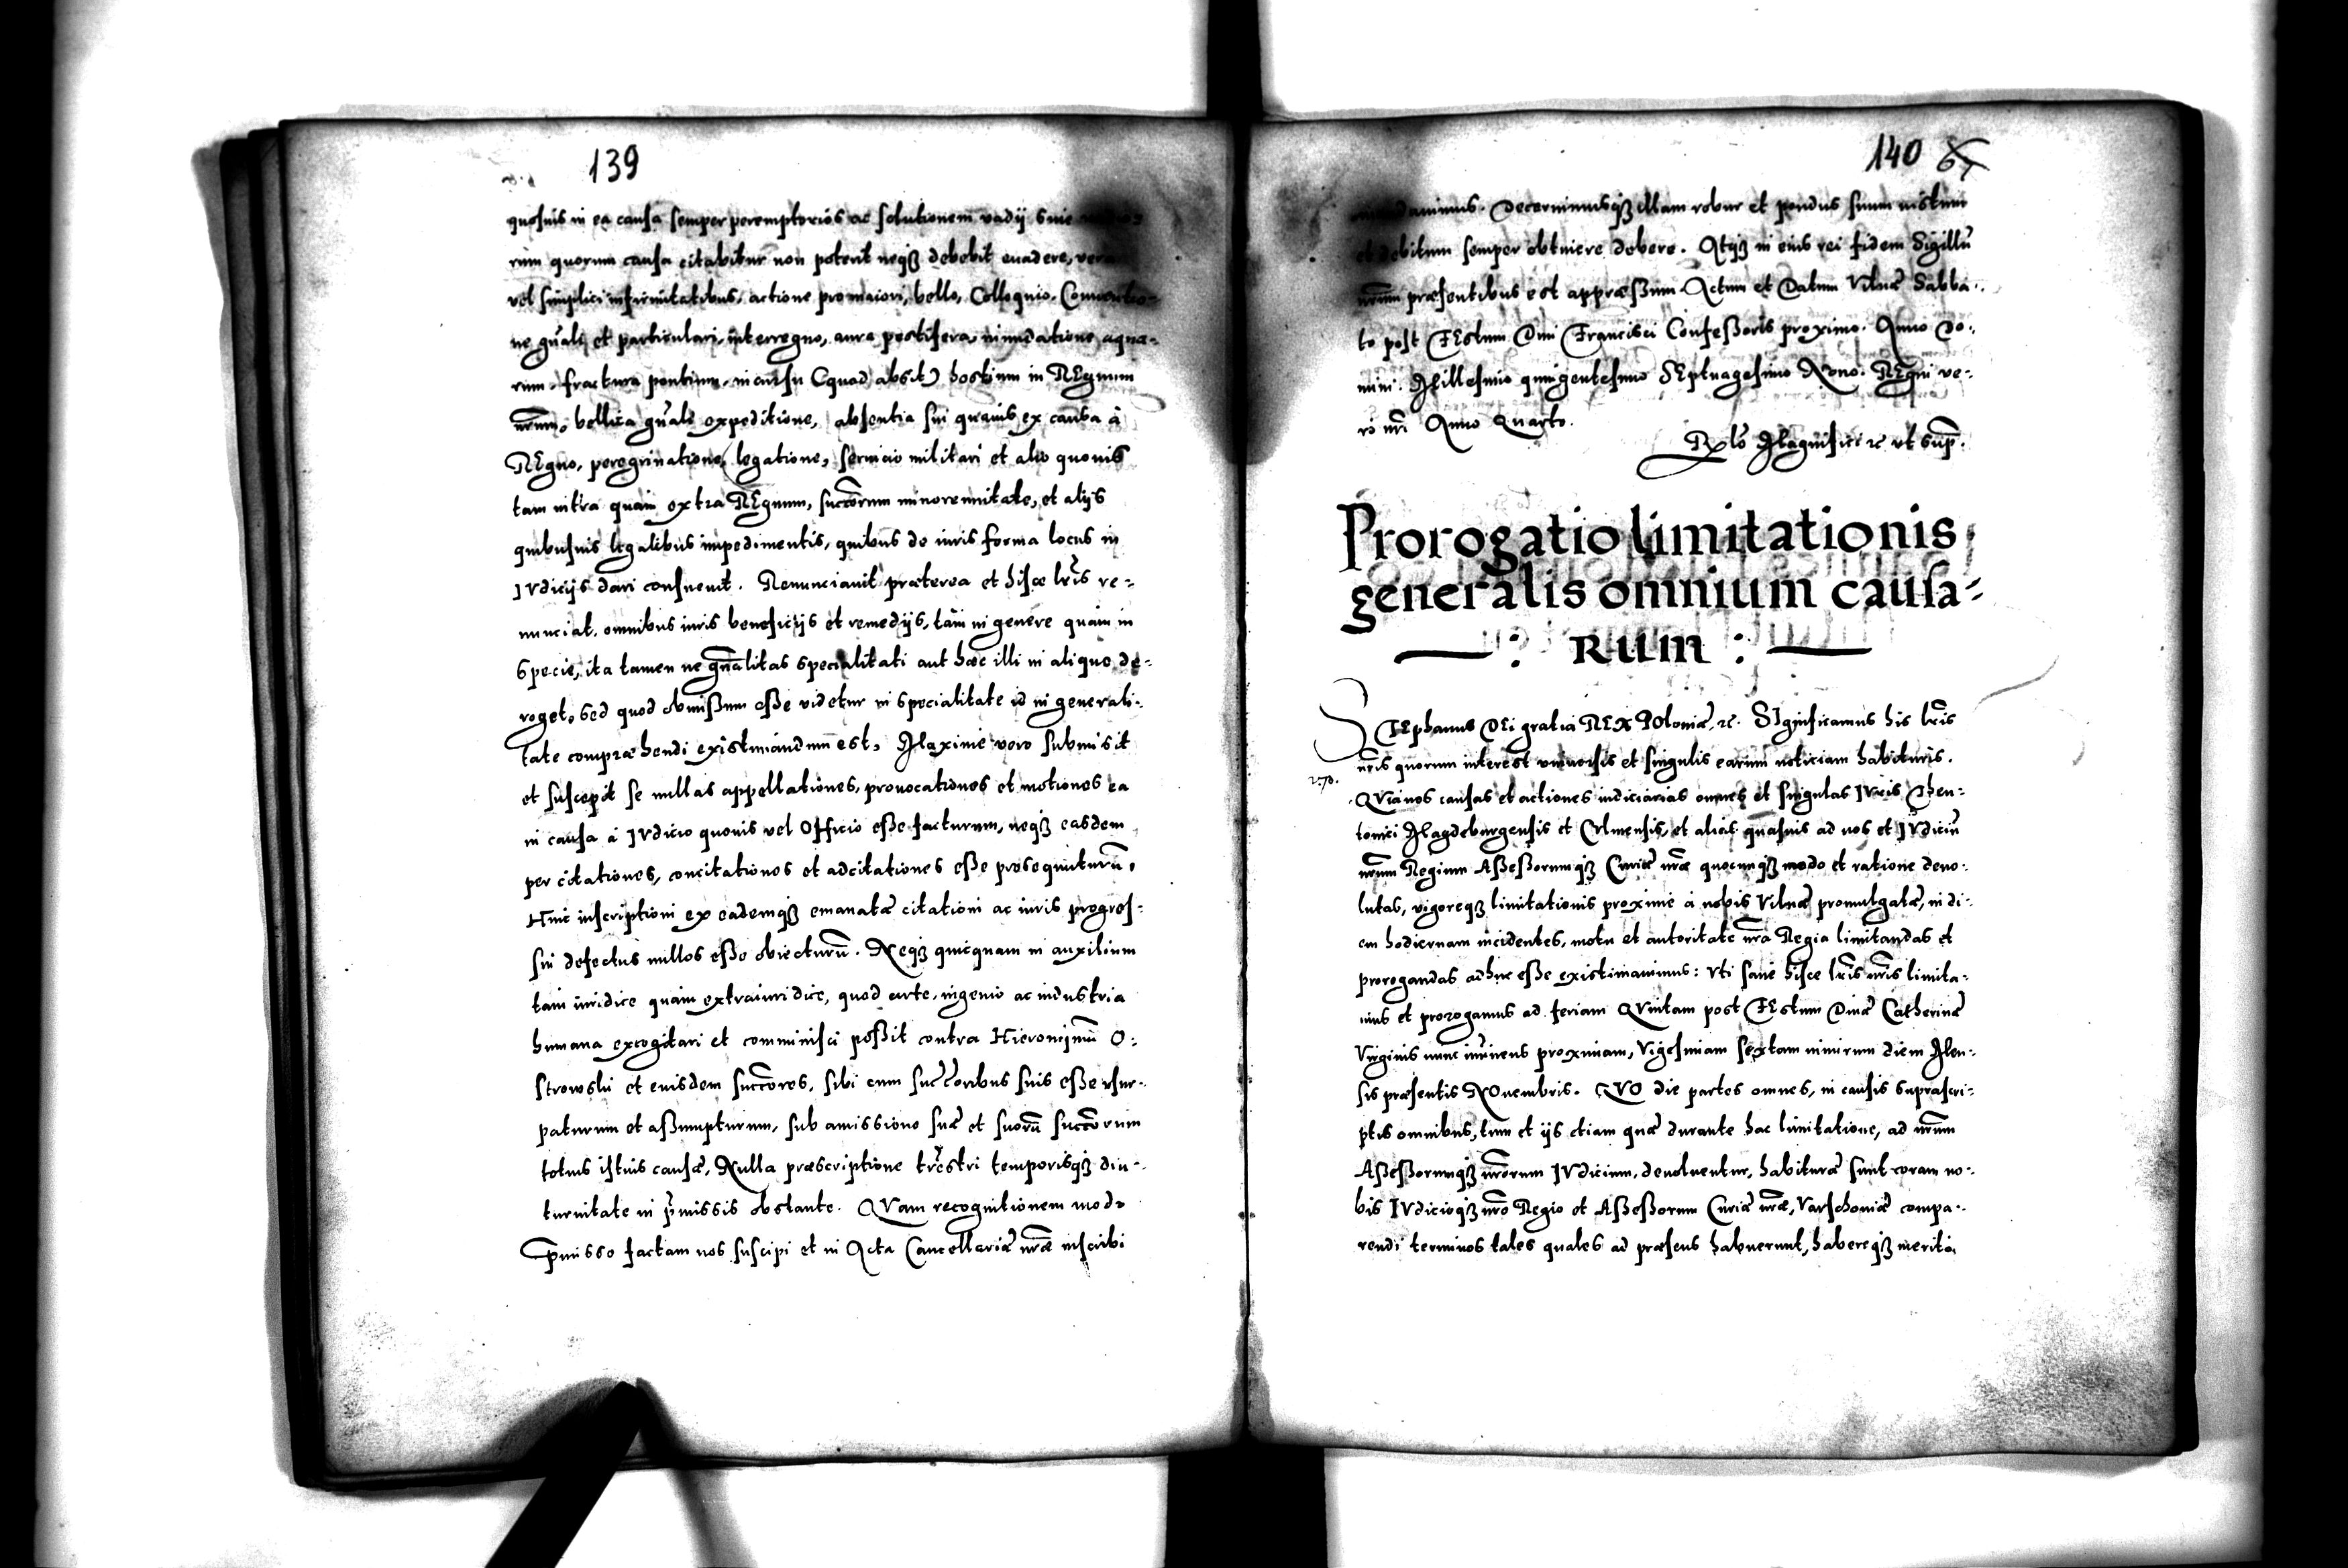 139
quosuis in ea causa semper peremptorios ac solutionem vadij siue
rum quorum causa citabitur non poterit neq₃ debebit euadere, vera
vel simplici infirmitatibus, actione pro maiori, bello, Colloquio, Conuentio-
ne gn̄ali et particulari, interregno, aura pestifera, inundatione aqua-
rum, fractura pontium, incursu (quod absit) hostium in REgnum
nr̄um, bellica gn̄ali expeditione, absentia sui quauis ex causa à
REgno, peregrinatione, legatione, seruicio militari et alio quouis
tam intra quam extra REgnum, succorum minorennitate, et alijs
quibusuis legalibus impedimentis, quibus de iuris forma locus in
IVdicijs dari consueuit. Renunciauit præterea et hisce lr̄is re-
nunciat, omnibus iuris beneficijs et remedijs, tam in genere quam in
specie, ita tamen ne gn̄alitas specialitati aut hæc illi in aliquo de-
roget, sed quod obmissum esse videtur in specialitate id in generali-
tate compræhendi existimandum est, Maxime vero submisit
et suscepit se nullas appellationes, prouocationes et motiones ea
in causa à IVdicio quouis vel Officio esse facturum, neq₃ easdem
per citationes, concitationes et adcitationes esse prosequuturū,
Huic inscriptioni ex eademq₃ emanatæ citationi ac iuris progres-
sui defectus nullos esse obiecturū. Neq₃ quicquam in auxilium
tam iuridice quam extraiuridice, quod arte, ingenio ac industria
humana excogitari et comminisci possit contra Hieronimū O-
strowski et eiusdem succores, sibi cum succoribus suis esse vsur-
paturum et assumpturum, sub amissione suæ et suorū succorum
totius istius causæ, Nulla præscriptione tr̄estri temporisq₃ diu-
turnitate in p̄missis obstante. QVam recognitionem modo
p̄misso factam nos suscipi et in Acta Cancellariæ nr̄æ inscribi
140 67
mandauimus. Decernimusq₃ illam robur et pondus suum iustum
et debitum semper obtinere debere. Atq₃ in eius rei fidem Sigillū
nr̄um præsentibus est appræssum. Actum et Datum Vilnæ Sabba-
to post FEstum Diui Francisci Confessoris proximo. Anno Do-
mini. Millesimo quingentesimo SEptuagesimo Nono. REgni ve-
ro nr̄i Anno Quarto.
Rl̄o Magnifici ꝛc vt sup̄.
Prorogatio limitationis
generalis omnium causa-
: RUM :
STEphanus DEi gratia REX POloniæ, ꝛc. SIgnificamus his lr̄is
nr̄is quorum interest vniuersis et singulis earum noticiam habituris.
QVia nos causas et actiones iudiciarias omnes et singulas IVris Then-
tonici Magdeburgensis et Culmensis, et alias quasuis ad nos et IVdiciū
nr̄um Regium Assessorumq₃ Curiæ nr̄æ quocunq₃ modo et ratione deuo-
lutas, vigoreq₃ limitationis proxime à nobis Vilnæ promulgatæ, in di-
em hodiernam incidentes, motu et autoritate nr̄a Regia limitandas et
prorogandas adhuc esse existimauimus: Vti sane hisce lr̄is nr̄is limita-
mus et prorogamus ad feriam QVintam post FEstum Diuæ Catherinæ
Virginis nunc im̄inens proximam, Vigesimam sextam nimirum diem Men-
sis præsentis NOuembris. QVO die partes omnes, in causis suprascri-
ptis omnibus, tum et ijs etiam quæ durante hac limitatione, ad nr̄um
Assessorumq₃ nr̄orum IVdicium, deuoluentur, habituræ sunt coram no-
bis IVdicioq₃ nr̄o Regio et Assessorum Curiæ nr̄æ, Varschouiæ compa-
rendi terminos tales quales ad præsens habuerunt, habereq₃ merito